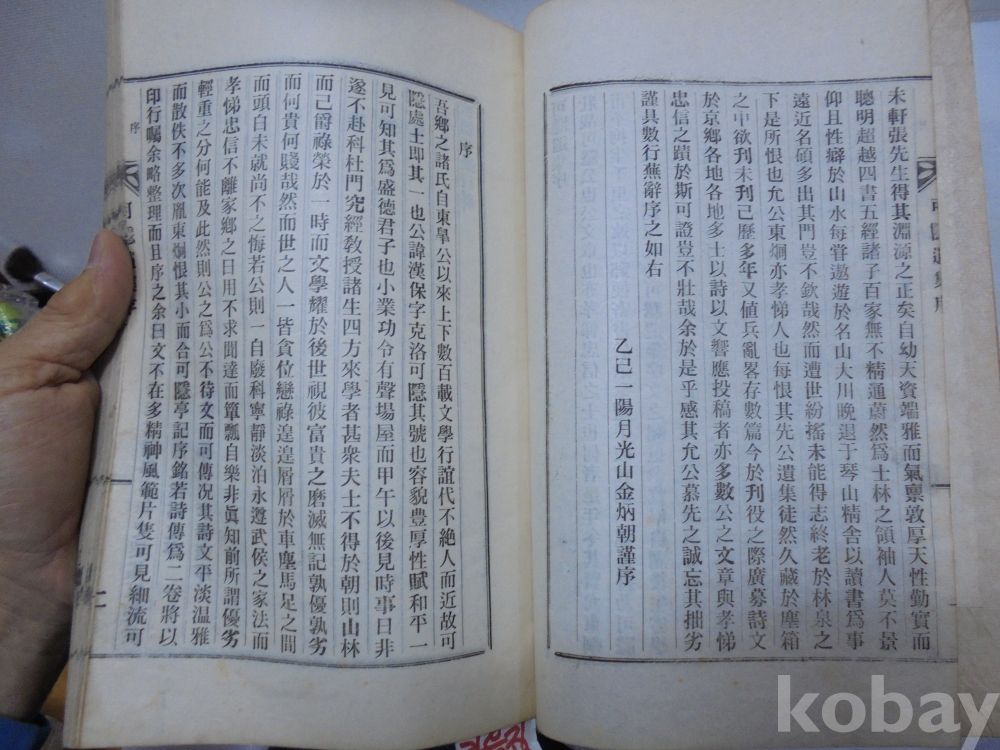 未軒張先生得其淵源之正矣自幼天資端雅而氣禀敦厚天性勤實而
聰明超越四書五經諸子百家無不精通蔚然爲士林之領袖人莫不景
仰且性癖於山水每甞遨遊於名山大川晚退于琴山精舍以讀書爲事
遠近名碩多出其門豈不欽哉然而遭世紛搖未能得志終老於林泉之
下是所恨也允公東炯亦孝悌人也每恨其先公遺集徒然久藏於塵箱
之中欲刊未刊己歷多年又値兵亂畧存數篇今於刊役之際廣募詩文
於京鄉各地各地多士以詩以文響應投稿者亦多數公之文章與孝悌
忠信之蹟於斯可證豈不壯哉余於是乎感其允公慕先之誠忘其拙劣
謹具數行蕪辭序之如右
乙己一陽月光山金炳朝謹序
序
吾鄉之諸氏自東臯公以來上下數百載文學行誼代不絕人而近故可
隱處士即其一也公諱漢保字克洛可隱其號也容貌豊厚性賦和平一
見可知其爲盛德君子也小業功令有聲場屋而甲午以後見時事日非
遂不赴科杜門究經敎授諸生四方來學者甚衆夫士不得於朝則山林
而己爵祿榮於一時而文學耀於後世視彼富貴之磨滅無記孰優孰劣
而何貴何賤哉然而世之人一皆貪位戀祿遑遑屑屑於車塵馬足之間
而頭白未就尚不之悔若公則一自廢科寧靜淡泊永遵武侯之家法而
孝悌忠信不離家鄉之日用不求聞達而簞瓢自樂非眞知前所謂優劣
輕重之分何能及此然則公之爲公不待文而可傳况其詩文平淡温雅
而散佚不多次胤東炯恨其小而合可隱亭記序銘若詩傳爲二卷將以
印行囑余略整理而且序之余曰文不在多精神風範片隻可見細流可
序
二
kobay